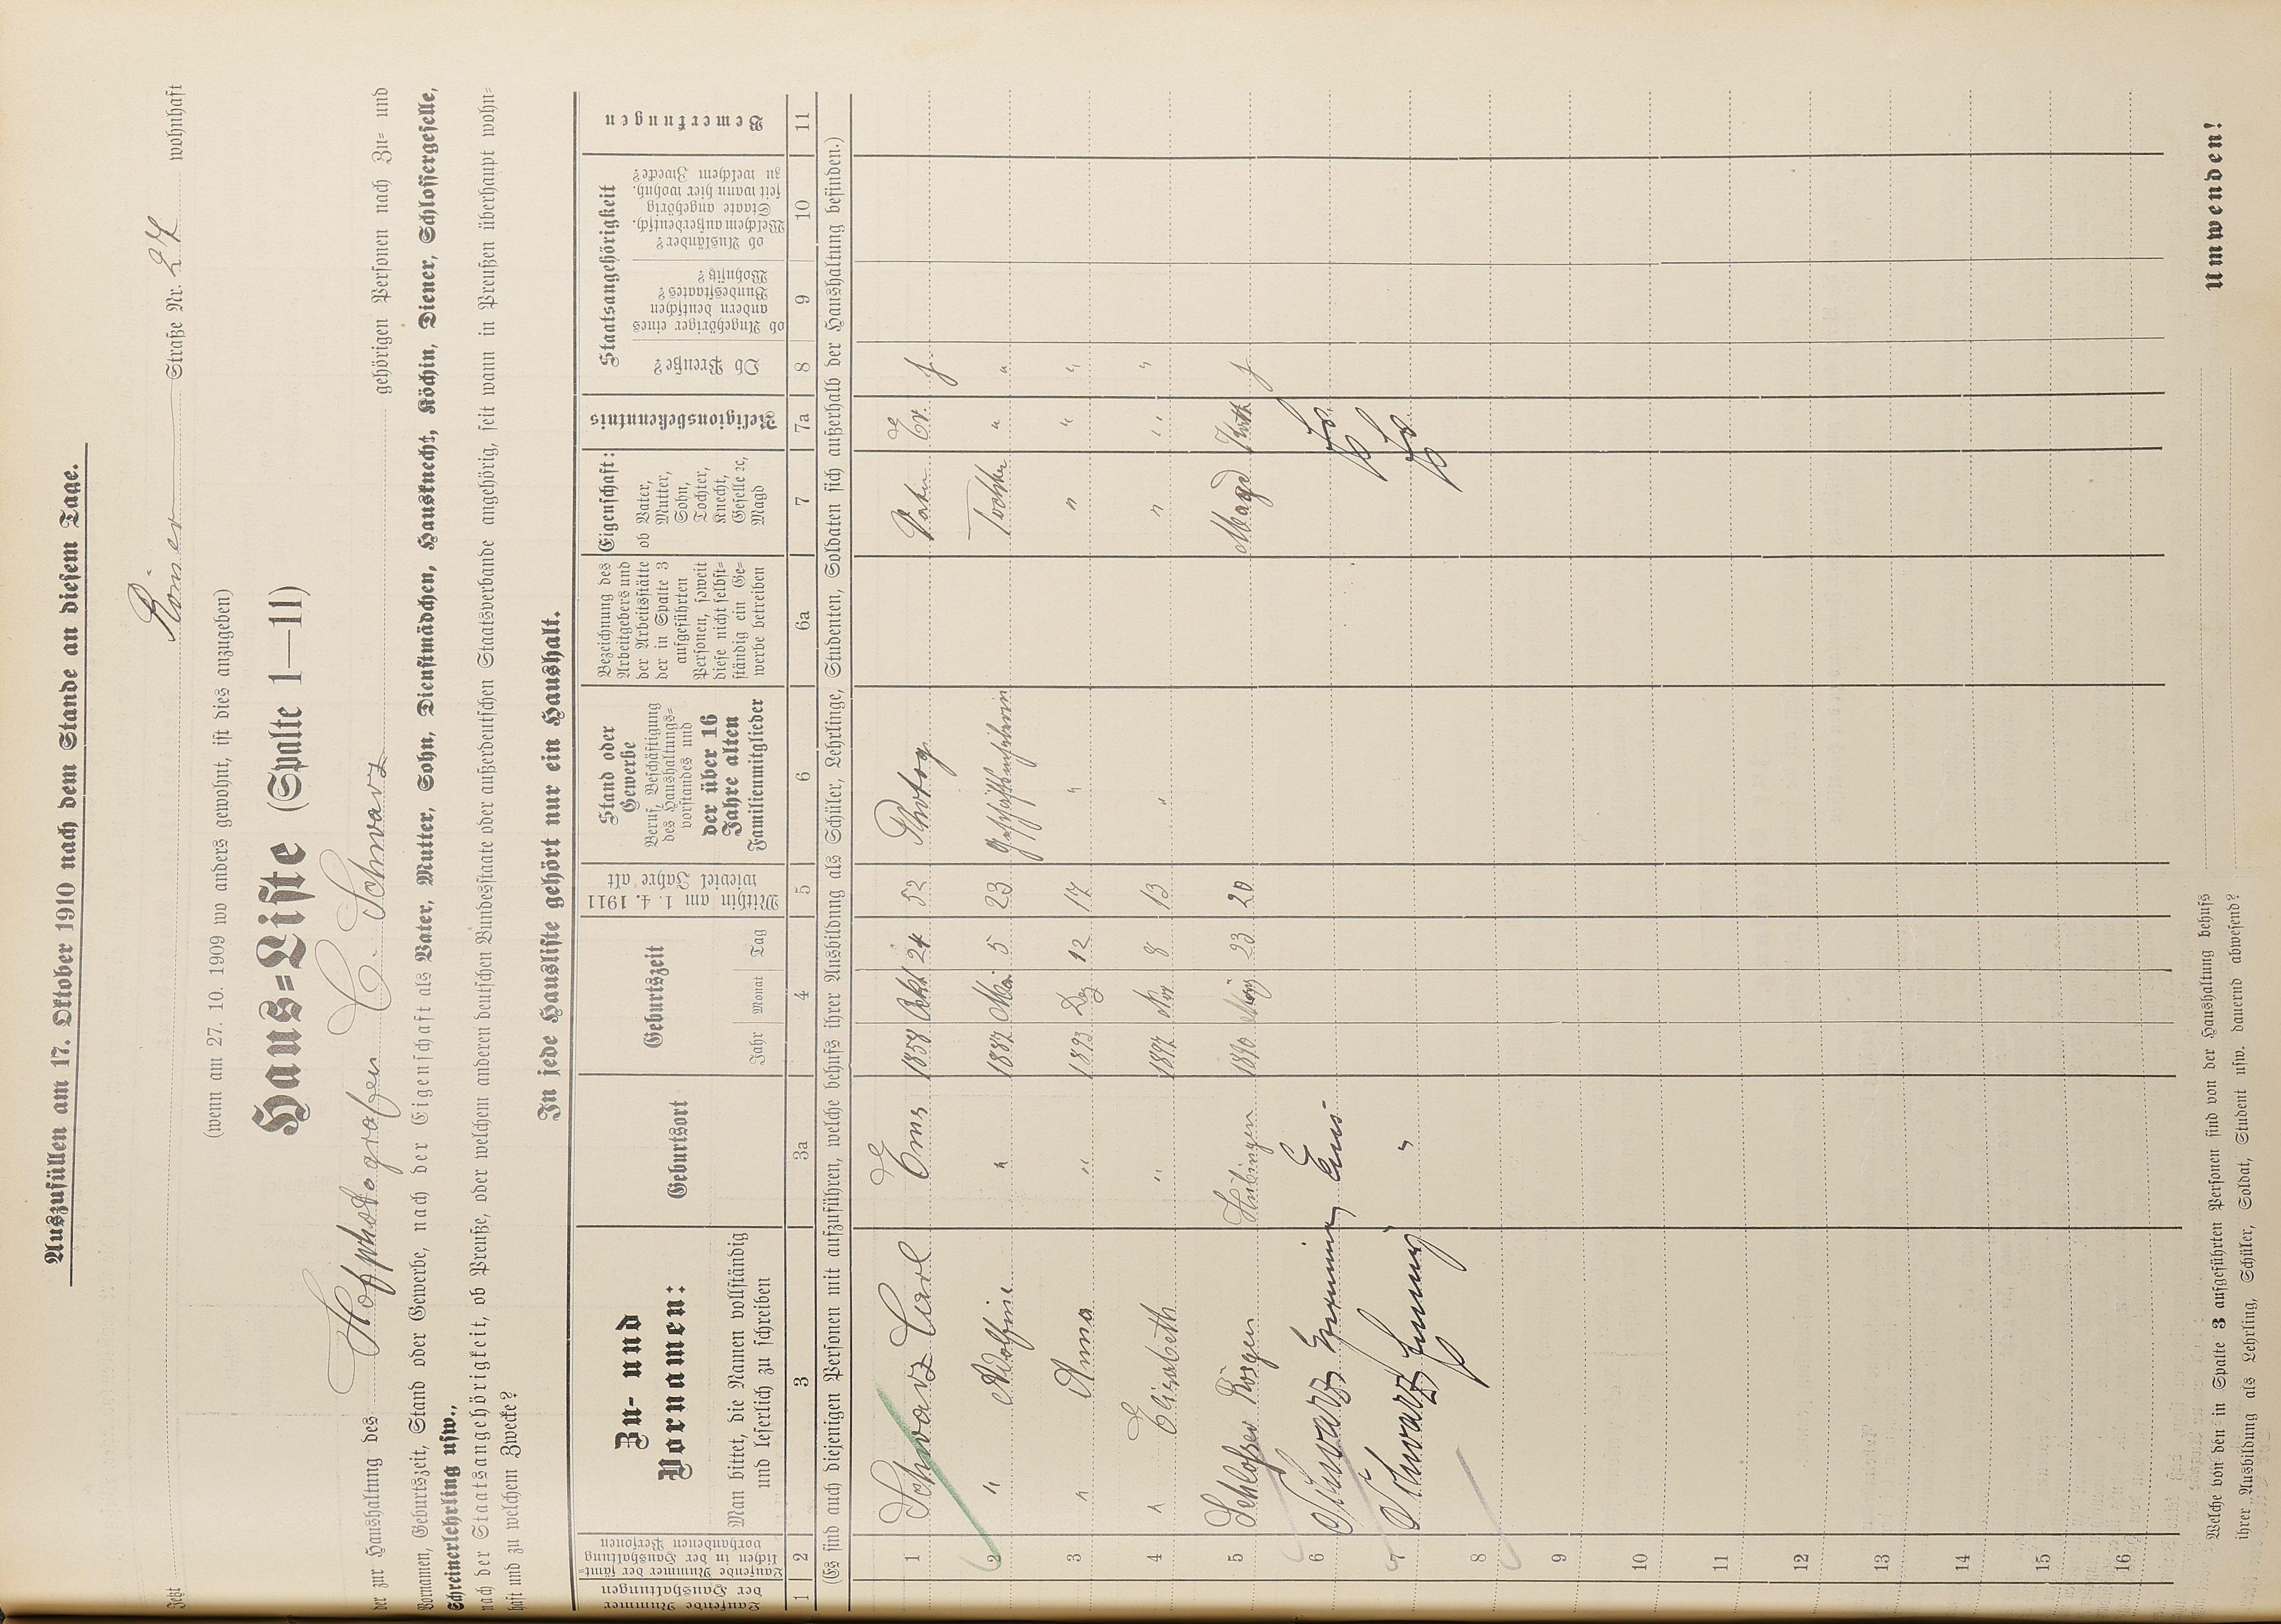 Auszufüllen am 17. Oktober 1910 nach dem Stande an diesem Tage.
Jetzt Römer Straße Nr. 27 wohnhaft
(wenn am 27. 10. 1909 wo anders gewohnt, ist dies anzugeben)
Haus=Liste (Spalte 1—11)
der zur Haushaltung des Hofphotografen C. Schwarz gehörigen Personen nach Zu= und
Vornamen, Geburtszeit, Stand oder Gewerbe, nach der Eigenschaft als Vater, Mutter, Sohn, Dienstmädchen, Hausknecht, Köchin, Diener, Schlossergeselle,
Schreinerlehrling usw.,
nach der Staatsangehörigkeit, ob Preuße, oder welchem anderen deutschen Bundesstaate oder außerdeutschen Staatsverbande angehörig, seit wann in Preußen überhaupt wohn=
haft und zu welchem Zwecke?
In jede Hausliste gehört nur ein Haushalt.
Laufende Nummer der Haushaltungen
Laufende Nummer der sämt=lichen in der Haushaltung vorhandenen Personen
Zu- und Vornamen:
Man bittet, die Namen vollständig und leserlich zu schreiben
Geburtsort
Geburtszeit
Jahr Monat Tag
Mithin am 1. 4. 1911 wieviel Jahre alt
Stand oder Gewerbe
Beruf, Beschäftigung des Haushaltungs=vorstandes und der über 16 Jahre alten Familienmitglieder
Bezeichnung des Arbeitgebers und der Arbeitsstätte der in Spalte 3 aufgeführten Personen, soweit diese nicht selbst=ständig ein Ge=werbe betreiben
Eigenschaft:
ob Vater, Mutter, Sohn, Tochter, Knecht, Geselle ec, Magd
Religionsbekenntnis
Staatsangehörigkeit
Ob Preuße?
ob Angehöriger eines andern deutschen Bundesstaates? Wohnsitz?
ob Ausländer? Welchem außerdeutsch. Staate angehörig seit wann hier wohnh. zu welchem Zwecke?
Bemerkungen
1 2 3 3a 4 5 6 6a 7 7a 8 9 10 11
(Es sind auch diejenigen Personen mit aufzuführen, welche behufs ihrer Ausbildung als Schüler, Lehrlinge, Studenten, Soldaten sich außerhalb der Haushaltung befinden.)
1 Schwarz Carl Ems 1858 Okt 24 52 Photog. Vater Ev. J
2 " Adolfine " 1887 Mai 5 23 Tochter " "
3 " Anna " 1893 Dez 12 17 " " " "
4 " Elisabeth " 1897 Nov 8 13 " " " "
5 Schlosser Hübingen 1890 März 23 20 Magd Kath J
6 Schwarz Ems
7 Schwarz "
8
9
10
11
12
13
14
15
16
Welche von den in Spalte 3 aufgeführten Personen sind von der Haushaltung behufs
ihrer Ausbildung als Lehrling, Schüler, Soldat, Student usw. dauernd abwesend?
Umwenden!